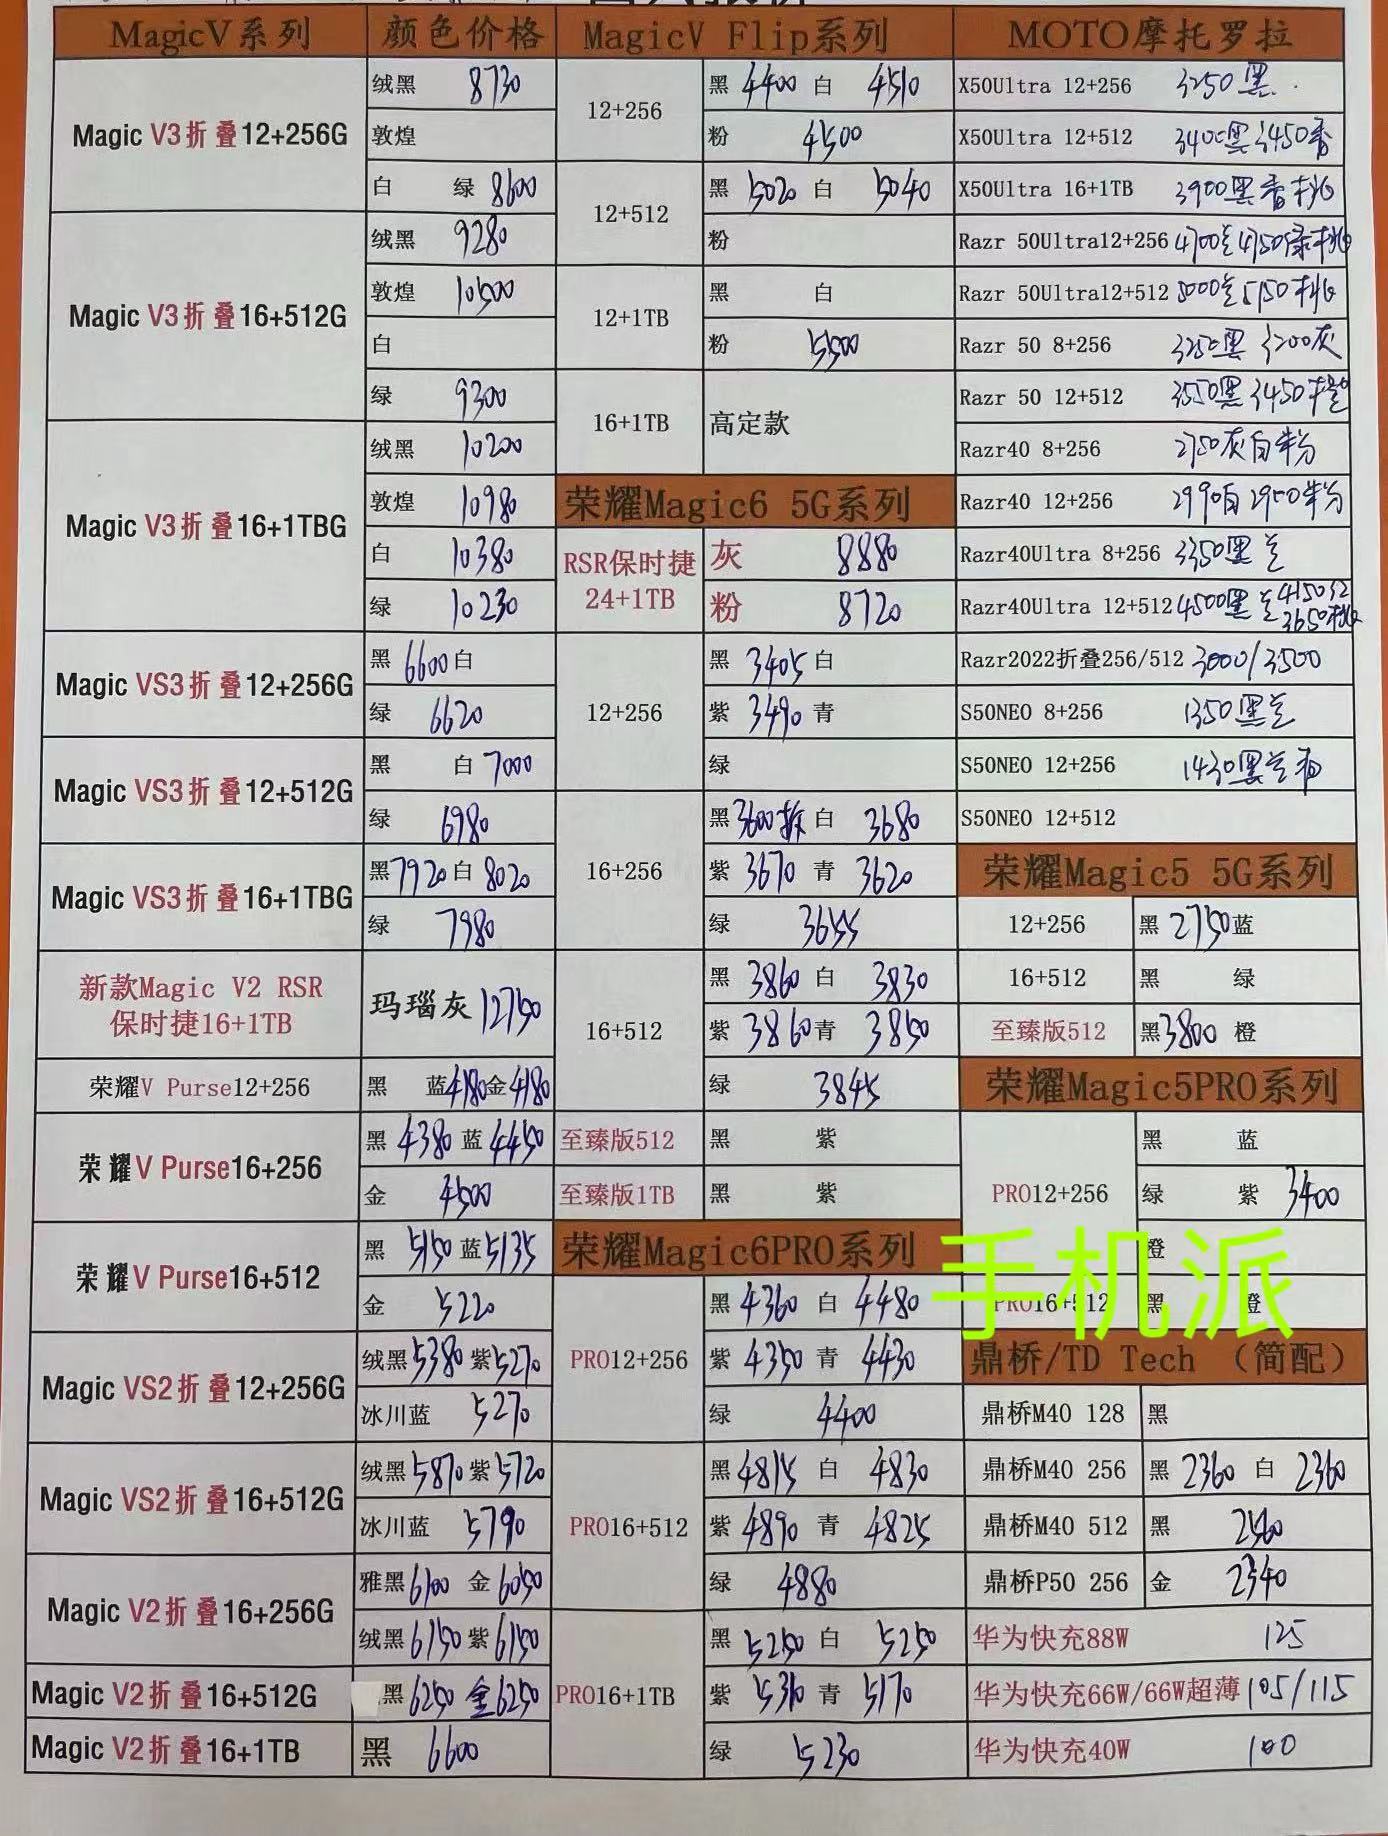 MagicV系列 颜色价格 MagicV Flip系列 MOTO摩托罗拉
Magic V3折叠12+256G
绒黑 8730
敦煌
白 绿 8600
Magic V3折叠16+512G
绒黑 9280
敦煌 10500
白
绿 9300
Magic V3折叠16+1TBG
绒黑 10200
敦煌 10980
白 10380
绿 10230
Magic VS3折叠12+256G
黑 6600 白
绿 6620
Magic VS3折叠12+512G
黑 白 7000
绿 6980
Magic VS3折叠16+1TBG
黑 7920 白 8020
绿 7980
新款Magic V2 RSR
保时捷16+1TB
玛瑙灰 12750
荣耀V Purse12+256
黑 蓝4180金4180
荣耀V Purse16+256
黑 4380 蓝 4450
金 4500
荣耀V Purse16+512
黑 5150 蓝 5135
金 5220
Magic VS2折叠12+256G
绒黑5380 紫5270
冰川蓝 5270
Magic VS2折叠16+512G
绒黑5870 紫5720
冰川蓝 5790
Magic V2折叠16+256G
雅黑6100 金 6050
绒黑6150 紫6150
Magic V2折叠16+512G
黑 6250 金6250
Magic V2折叠16+1TB
黑 6600
12+256
黑 4400 白 4510
粉 4500
12+512
黑 5020 白 5040
粉
12+1TB
黑 白
粉 5500
16+1TB
高定款
荣耀Magic6 5G系列
RSR保时捷
24+1TB
灰 8880
粉 8720
12+256
黑 3405 白
紫 3490 青
绿
16+256
黑 3600拆 白 3680
紫 3670 青 3620
绿 3655
16+512
黑 3860 白 3830
紫 3860 青 3850
绿 3845
至臻版512 黑 紫
至臻版1TB 黑 紫
荣耀Magic6PRO系列
PRO12+256
黑 4360 白 4480
紫 4350 青 4430
绿 4400
PRO16+512
黑 4815 白 4830
紫 4890 青 4825
绿 4880
PRO16+1TB
黑 5250 白 5250
紫 5310 青 5170
绿 5230
X50Ultra 12+256 3250黑
X50Ultra 12+512 3400黑 3450香
X50Ultra 16+1TB 3900黑香桃
Razr 50Ultra12+256 4700兰4750绿桃
Razr 50Ultra12+512 5000兰5150桃
Razr 50 8+256 3250黑 3200灰
Razr 50 12+512 3550黑 3450橙
Razr40 8+256 2750灰白粉
Razr40 12+256 2990白 2950粉
Razr40Ultra 8+256 3350黑兰
Razr40Ultra 12+512 4500黑兰4150红
3650桃
Razr2022折叠256/512 3000/3500
S50NEO 8+256 1350黑兰
S50NEO 12+256 1430黑兰
S50NEO 12+512
荣耀Magic5 5G系列
12+256 黑 2750蓝
16+512 黑 绿
至臻版512 黑3800 橙
荣耀Magic5PRO系列
PRO12+256
黑 蓝
绿 紫 3400
橙
PRO16+512 黑 橙
手机派
鼎桥/TD Tech （简配）
鼎桥M40 128 黑
鼎桥M40 256 黑 2360 白 2360
鼎桥M40 512 黑 2560
鼎桥P50 256 金 2340
华为快充88W 125
华为快充66W/66W超薄 105/115
华为快充40W 100